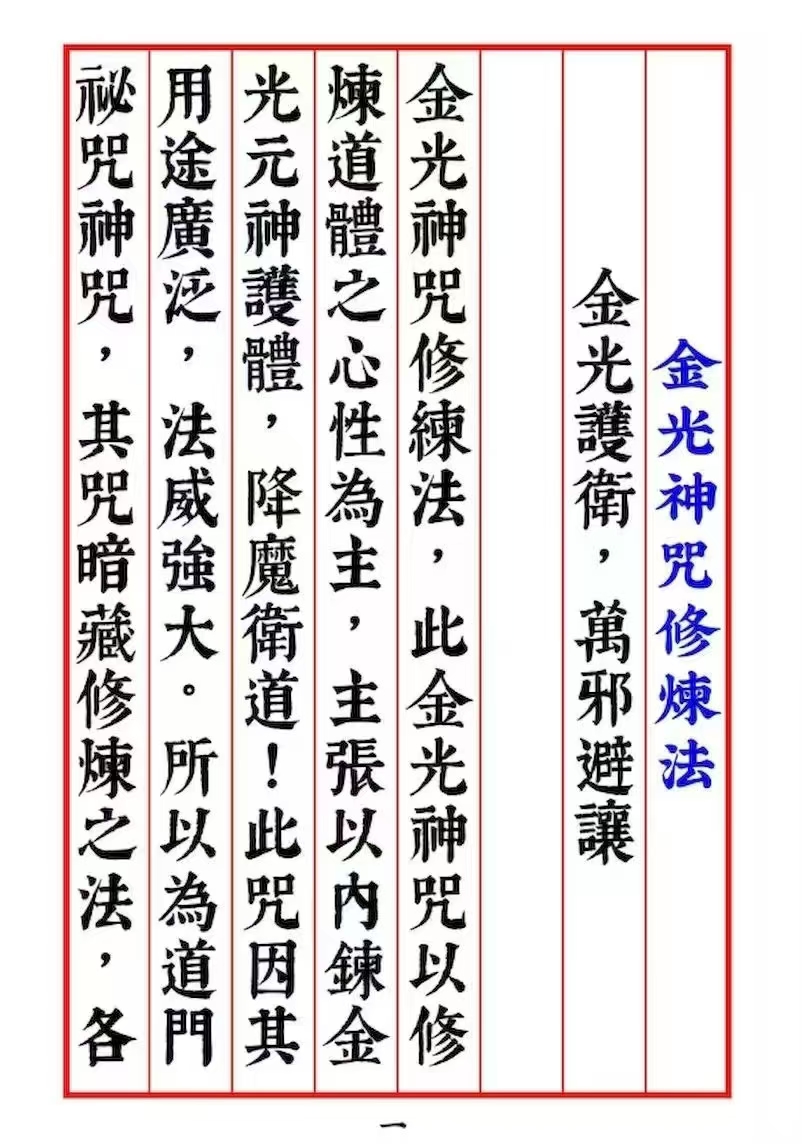 金光神咒修煉法
金光護衛，萬邪避讓
金光神咒修練法，此金光神咒以修
煉道體之心性為主，主張以內鍊金
光元神護體，降魔衛道！此咒因其
用途廣泛，法威強大。所以為道門
祕咒神咒，其咒暗藏修煉之法，各
一